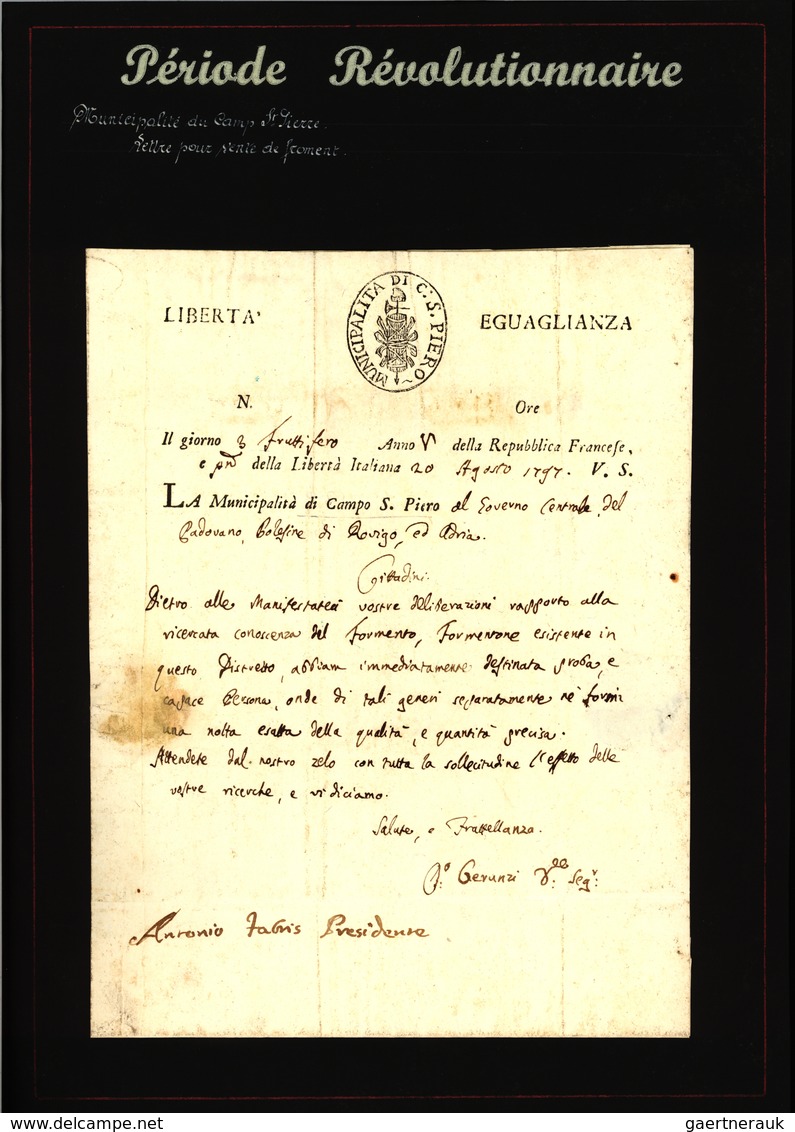 Période Révolutionnaire
Municipalité du Camp St Pierre.
Lettre pour vente de froment.
MUNICIPALITA DI C. S. PIERO
LIBERTA' EGUAGLIANZA
N. Ore
Il giorno 3 Fruttifero Anno V della Repubblica Francese,
e pmo della Libertà Italiana 20 Agosto 1797. V. S.
LA Municipalità di Campo S. Piero al Governo Centrale del
Padovano, Polesine di Rovigo, ed Adria.
Cittadini.
Dietro alle Manifestateci vostre deliberazioni rapporto alla
ricercata conoscenza del formento, formentone esistente in
questo Distretto, abbiam immediatamente destinata proba, e
capace Persona, onde di tali generi separatamente ne formi
una notta esatta della qualità, e quantità precisa.
Attendete dal nostro zelo con tutta la sollecitudine l'effetto delle
vostre ricerche, e vi diciamo.
Salute, e Frattellanza.
Gerunzi Segr:
Antonio Fabris Presidente
delcampe.net
gaertnerauk